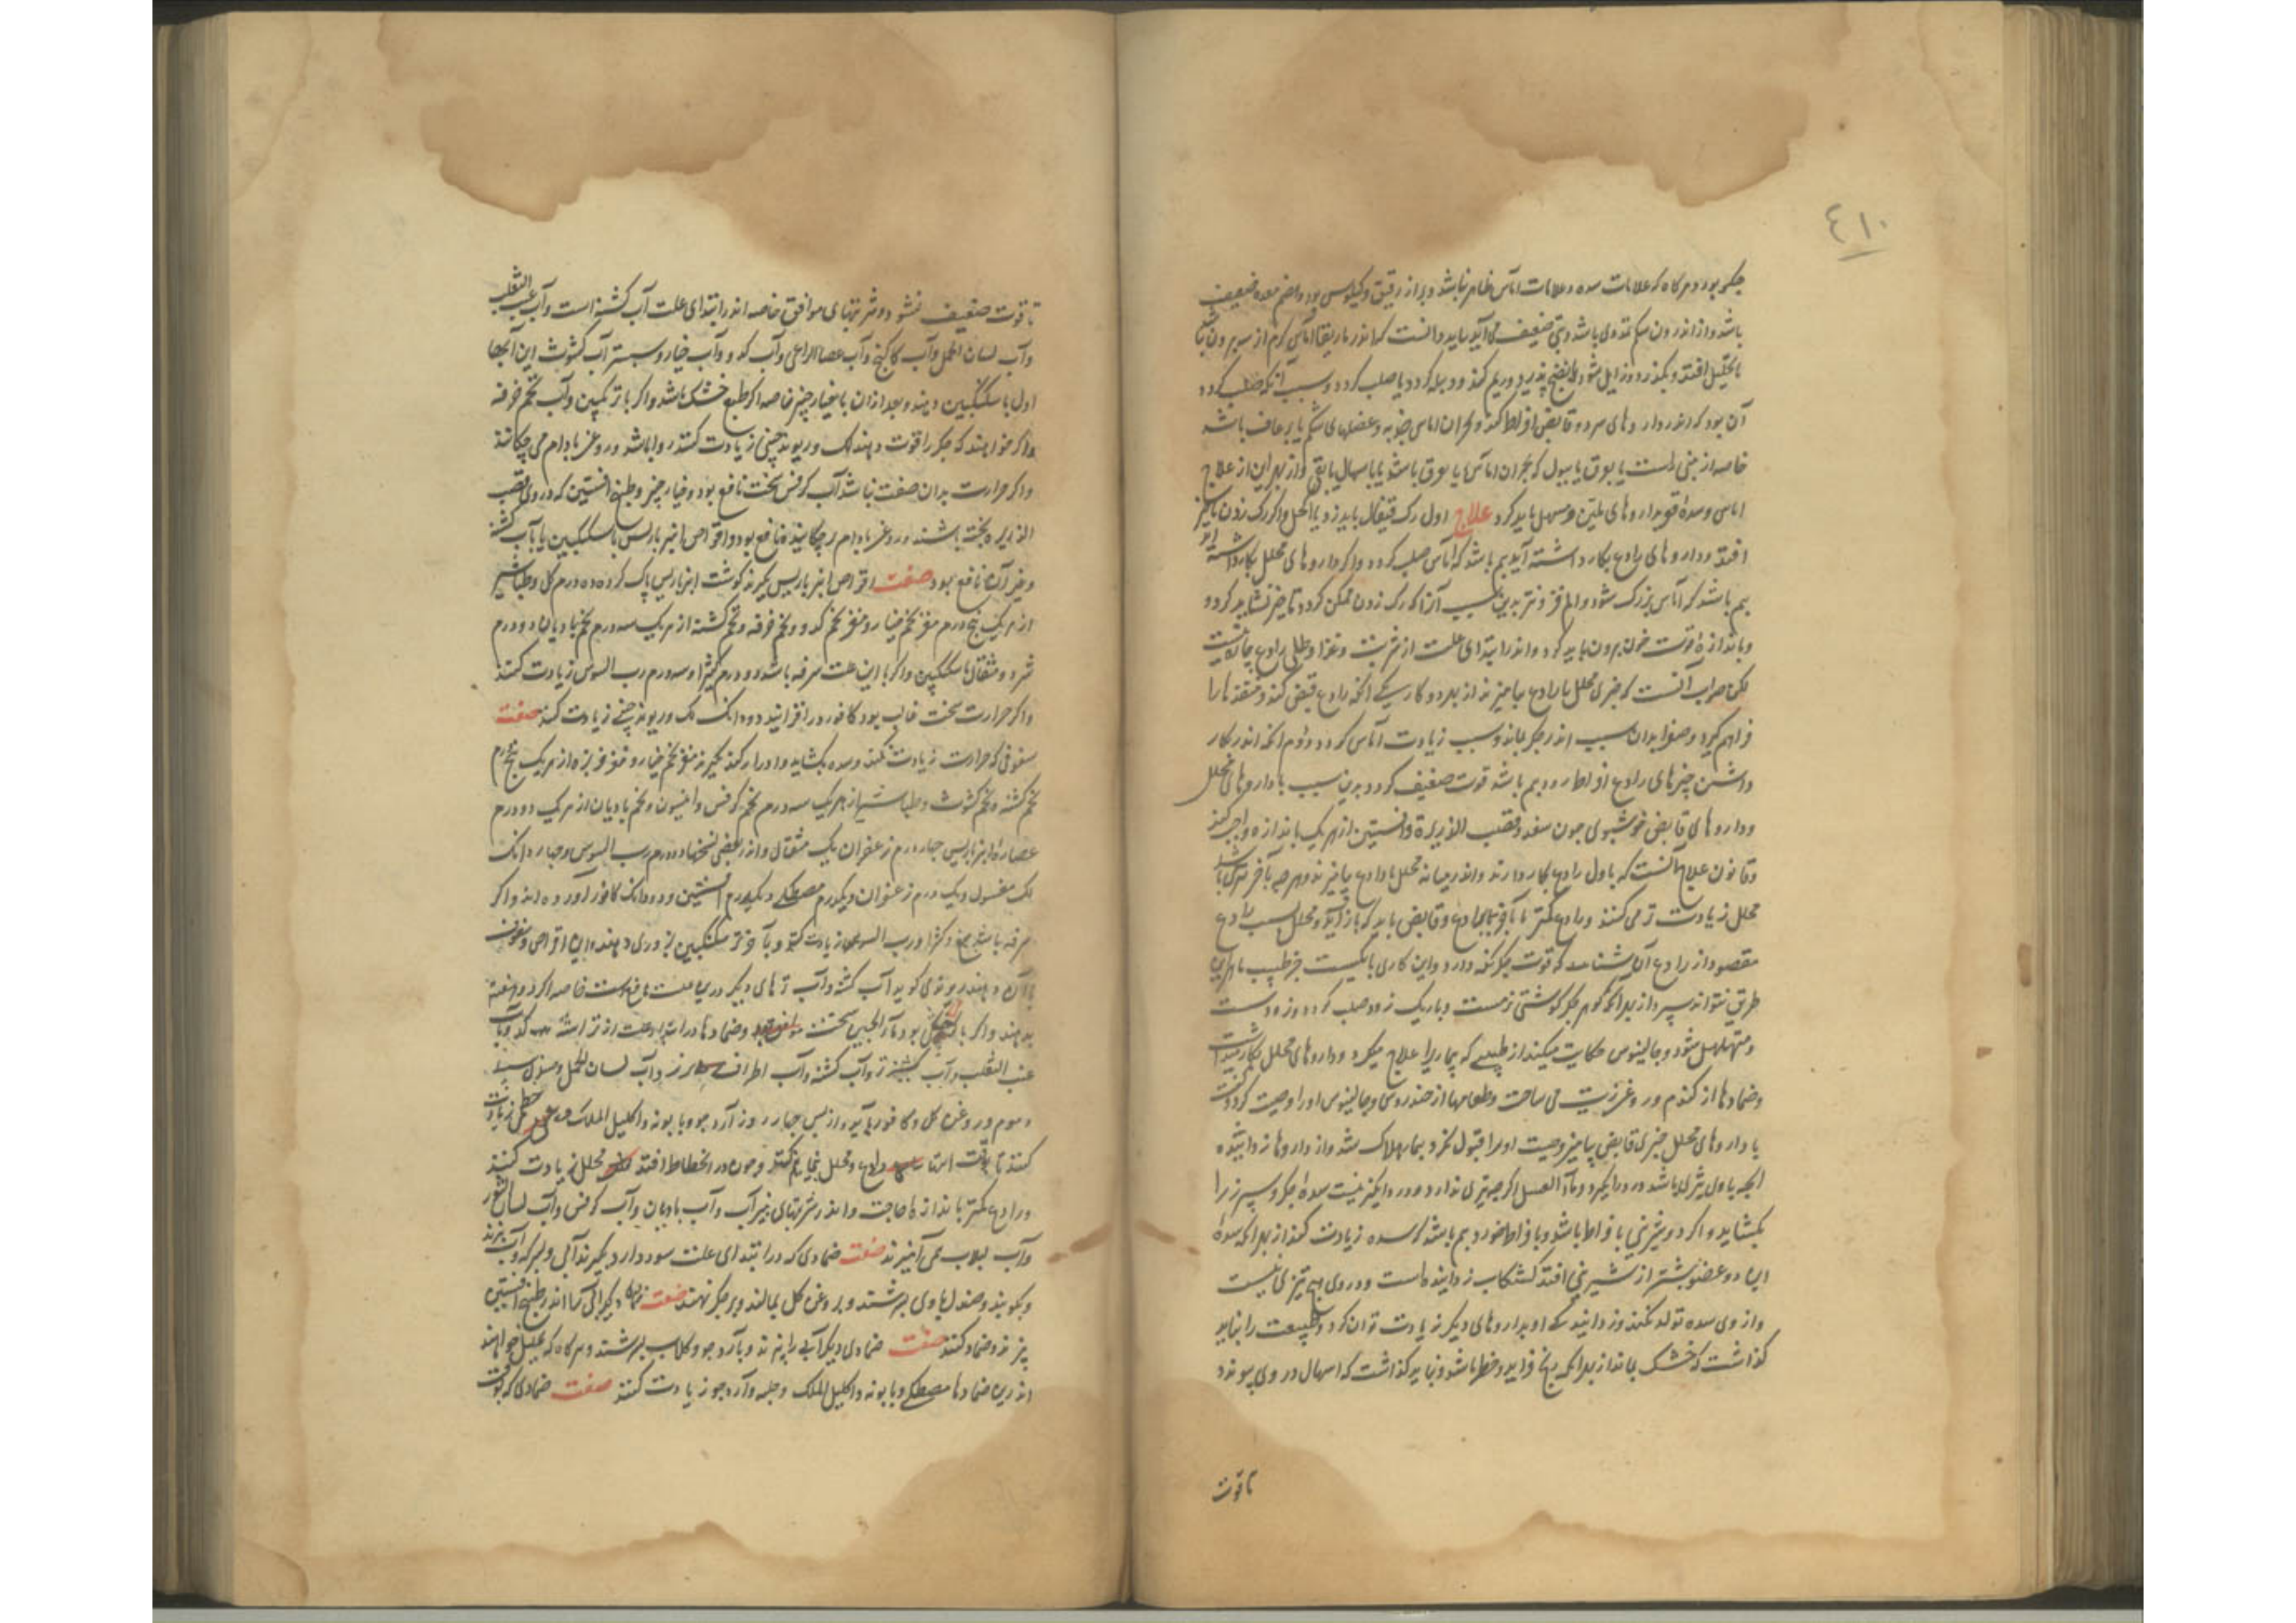 ٤١٠
جگر بود و هرگاه که علامات سده و علامات آماس ظاهر نباشد و براز رقیق و کیلوسی بود و هضم معده ضعیف
باشد و از اندرون شکم تمددی باشد و تبی ضعیف می آید بباید دانست که اندر ماریقا آماس گرم از بیرون
تا تحلیل افتد و بگذرد و زایل شود یا نضج پذیرد و ریم کند و دبیله گردد یا صلب گردد و سبب آنکه صلب گردد
آن بود که اندر داروهای سرد و قابض افراط کنند و بحران آماس حدبه و عضلهای شکم یا برعاف باشد
خاصه از بینی راست یا بعرق یا ببول که بحران آماس یا بعرق باشد یا باسهال یا بقی و از بهر این از علاج
اماس و سده قوی داروهای ملین و مسهل باید کرد علاج اول رگ قیفال باید زد یا اکحل و اگر رگ زدن تاخیر
افتد و داروهای رادع بکار داشته آید بیم باشد که آماس صلب گردد و اگر داروهای محلل بکار داشته آید
بیم باشد که آماس بزرگ شود و الم فزونتر بدین سبب آنرا که رگ زدن ممکن گردد تاخیر نشاید کرد و
و باندازه قوت خون برون باید کرد و اندر ابتدای علت از شربت و غذا و طلی رادع چاره نیست
لکن صواب آنست که چیزی محلل با رادع بیامیزند از بهر دو کار یکی آنکه رادع قبض کند و منفذها را
فراهم گیرد و صفرا بدان سبب اندر جگر بماند و سبب زیادت آماس گردد دوم آنکه اندر کار
داشتن چیزهای رادع افراط رود بیم باشد قوت ضعیف گردد بدین سبب با داروهای محلل
و داروهای قابض خوشبوی چون سعد و قصب الذریره و افسنتین از هر یک باندازه واجب کنند
و قانون علاج آنست که باول رادع بکار دارند و اندر میانه محلل با رادع بیامیزند و هرچه بآخر نزدیک باشد
محلل زیادت تر می کنند و رادع کمتر تا بآخر بجای رادع و قابض باید که باز آید و محلل سبب رادع
مقصود از رادع آن بشناسد که قوت جگر نگه دارد و این کاری باریکست جز طبیب ماهر این
طریق نتواند سپرد از بهر آنکه گوهر جگر گوشتی نرمست و باریک زود صلب گردد و زود سست
و متهلهل شود و جالینوس حکایت میکند از طبیبی که بیماری را علاج میکرد و داروهای محلل بکار میداشت
وضمادها از گندم و روغن زیت می ساخت و طعامها از خندروس و جالینوس او را وصیت کرد و گفت
با داروهای محلل چیزی قابض بیامیز وصیت او را قبول نکرد بیمار هلاک شد و از داروها زداینده
آنچه باول شیرین باشد در وی دیگر و ماء العسل اگر چه تیزی ندارد و در وی دیگر نیست سده جگر و سپرز را
بگشاید و اگر در شیرینی با فراط باشد و با فراط خورد بیم باشد که سده زیادت کند از بهر آنکه سده
این دو عضو بیشتر از شیرینی افتد کشکاب زداینده است و در وی هیچ تیزی نیست
و از وی سده تولد نکند و زدایندگی او بداروهای دیگر زیادت توان کرد و طبیعت را نباید
گذاشت که خشک بماند از بهر آنکه رنج فزاید و خطر باشد و نباید گذاشت که اسهال در وی پیوندد
تا قوت
تا قوت ضعیف نشود و شربتهای موافق خاصه اندر ابتدای علت آب کشنه است و آب عنب الثعلب
و آب لسان الحمل و آب کاکنج و آب عصا الراعی و آب کدو و آب خیار و سبستر آب کشوث این آبها
اول با سکنگبین دهند و بعد از آن با خیار چنبر خاصه اگر طبع خشک باشد و اگر با ترنگبین و آب تخم خرفه
و اگر خواهند که جگر را قوت دهند لک و ریوند چینی زیادت کنند روا باشد و روغن بادام می چکانند
و اگر حرارت بدان صفت نباشد آب کرفس سخت نافع بود و خیار چنبر و طبیخ افسنتین که در وی قصب
الذریره پخته باشند و روغن بادام بر چکانیده نافع بود و اقراص انبرباریس با سکنگبین یا با آب کشنه
و غیر آن نافع بود صفت اقراص انبرباریس بگیرند گوشت انبرباریس پاک کرده ده درم گل و طباشیر
از هر یک پنج درم مغز تخم خیار و مغز تخم کدو و تخم خرفه و تخم کشنه از هر یک سه درم تخم بادیان دو درم
شربت دو مثقال با سکنگبین و اگر با این علت سرفه باشد دو درم کثیرا و سه درم رب السوس زیادت کنند
و اگر حرارت سخت غالب بود کافور در افزایند دو دانگ لک و ریوند چینی زیادت کنند صفت
سفوفی که حرارت زیادت نکند و سده بگشاید و ادرار کند بگیرند مغز تخم خیار و مغز خربزه از هر یک پنج درم
تخم کشنه و تخم کشوث و طباشیر از هر یک سه درم تخم کرفس و انیسون و تخم بادیان از هر یک دو درم
عصاره انبرباریس چهار درم زعفران یک مثقال و اندر بعضی نسخها دو درم رب السوس و چهار دانگ
لک مغسول و یک درم زعفران و یکدرم مصطکی و یکدرم افسنتین و دو دانگ کافور آورده اند و اگر
سرفه باشد صمغ و کثیرا و رب السوس زیادت کنند و بآخر سکنگبین بزوری دهند و این اقراص و سفوف
با آن دهند رازی گوید آب کشنه و آب ترهای دیگر درین علت نافع است خاصه اگر دو هفته
بدهند و اگر با بود ماء الجبن سخت موافق بود وضمادها در ابتدای علت از تراشه کدو و آب
عنب الثعلب و آب کشنیز تر و آب کشنه و آب اطراف رز و آب لسان الحمل و صندل سپید
و موم و روغن گل و کافور باید و از پس چهار روز آرد جو و بابونه و اکلیل الملک و خطمی زیادت
کنند تا بوقت انتها رادع و محلل بهم کنند و چون در انحطاط افتد محلل زیادت کنند
و رادع کمتر باندازه حاجت و اندر شربتهای نیز آب و آب بادیان و آب کرفس و آب لسان الثور
و آب لبلاب می آمیزند صفت ضمادی که در ابتدای علت سود دارد بگیرند آبی و بسرکه و آب بپزند
و بکوبند و صندل با وی بسرشند و بروغن گل بمالند و بر جگر نهند صفت ضماد دیگر آبی آسا اندر طبیخ افسنتین
پزند وضماد کنند صفت ضمادی دیگر آبی را بپزند و بآرد جو و گلاب بسرشند و هرگاه که تحلیل خواهند
اندرین ضمادها مصطکی و بابونه و اکلیل الملک و حلبه و آرد جو زیادت کنند صفت ضمادی که بوقت